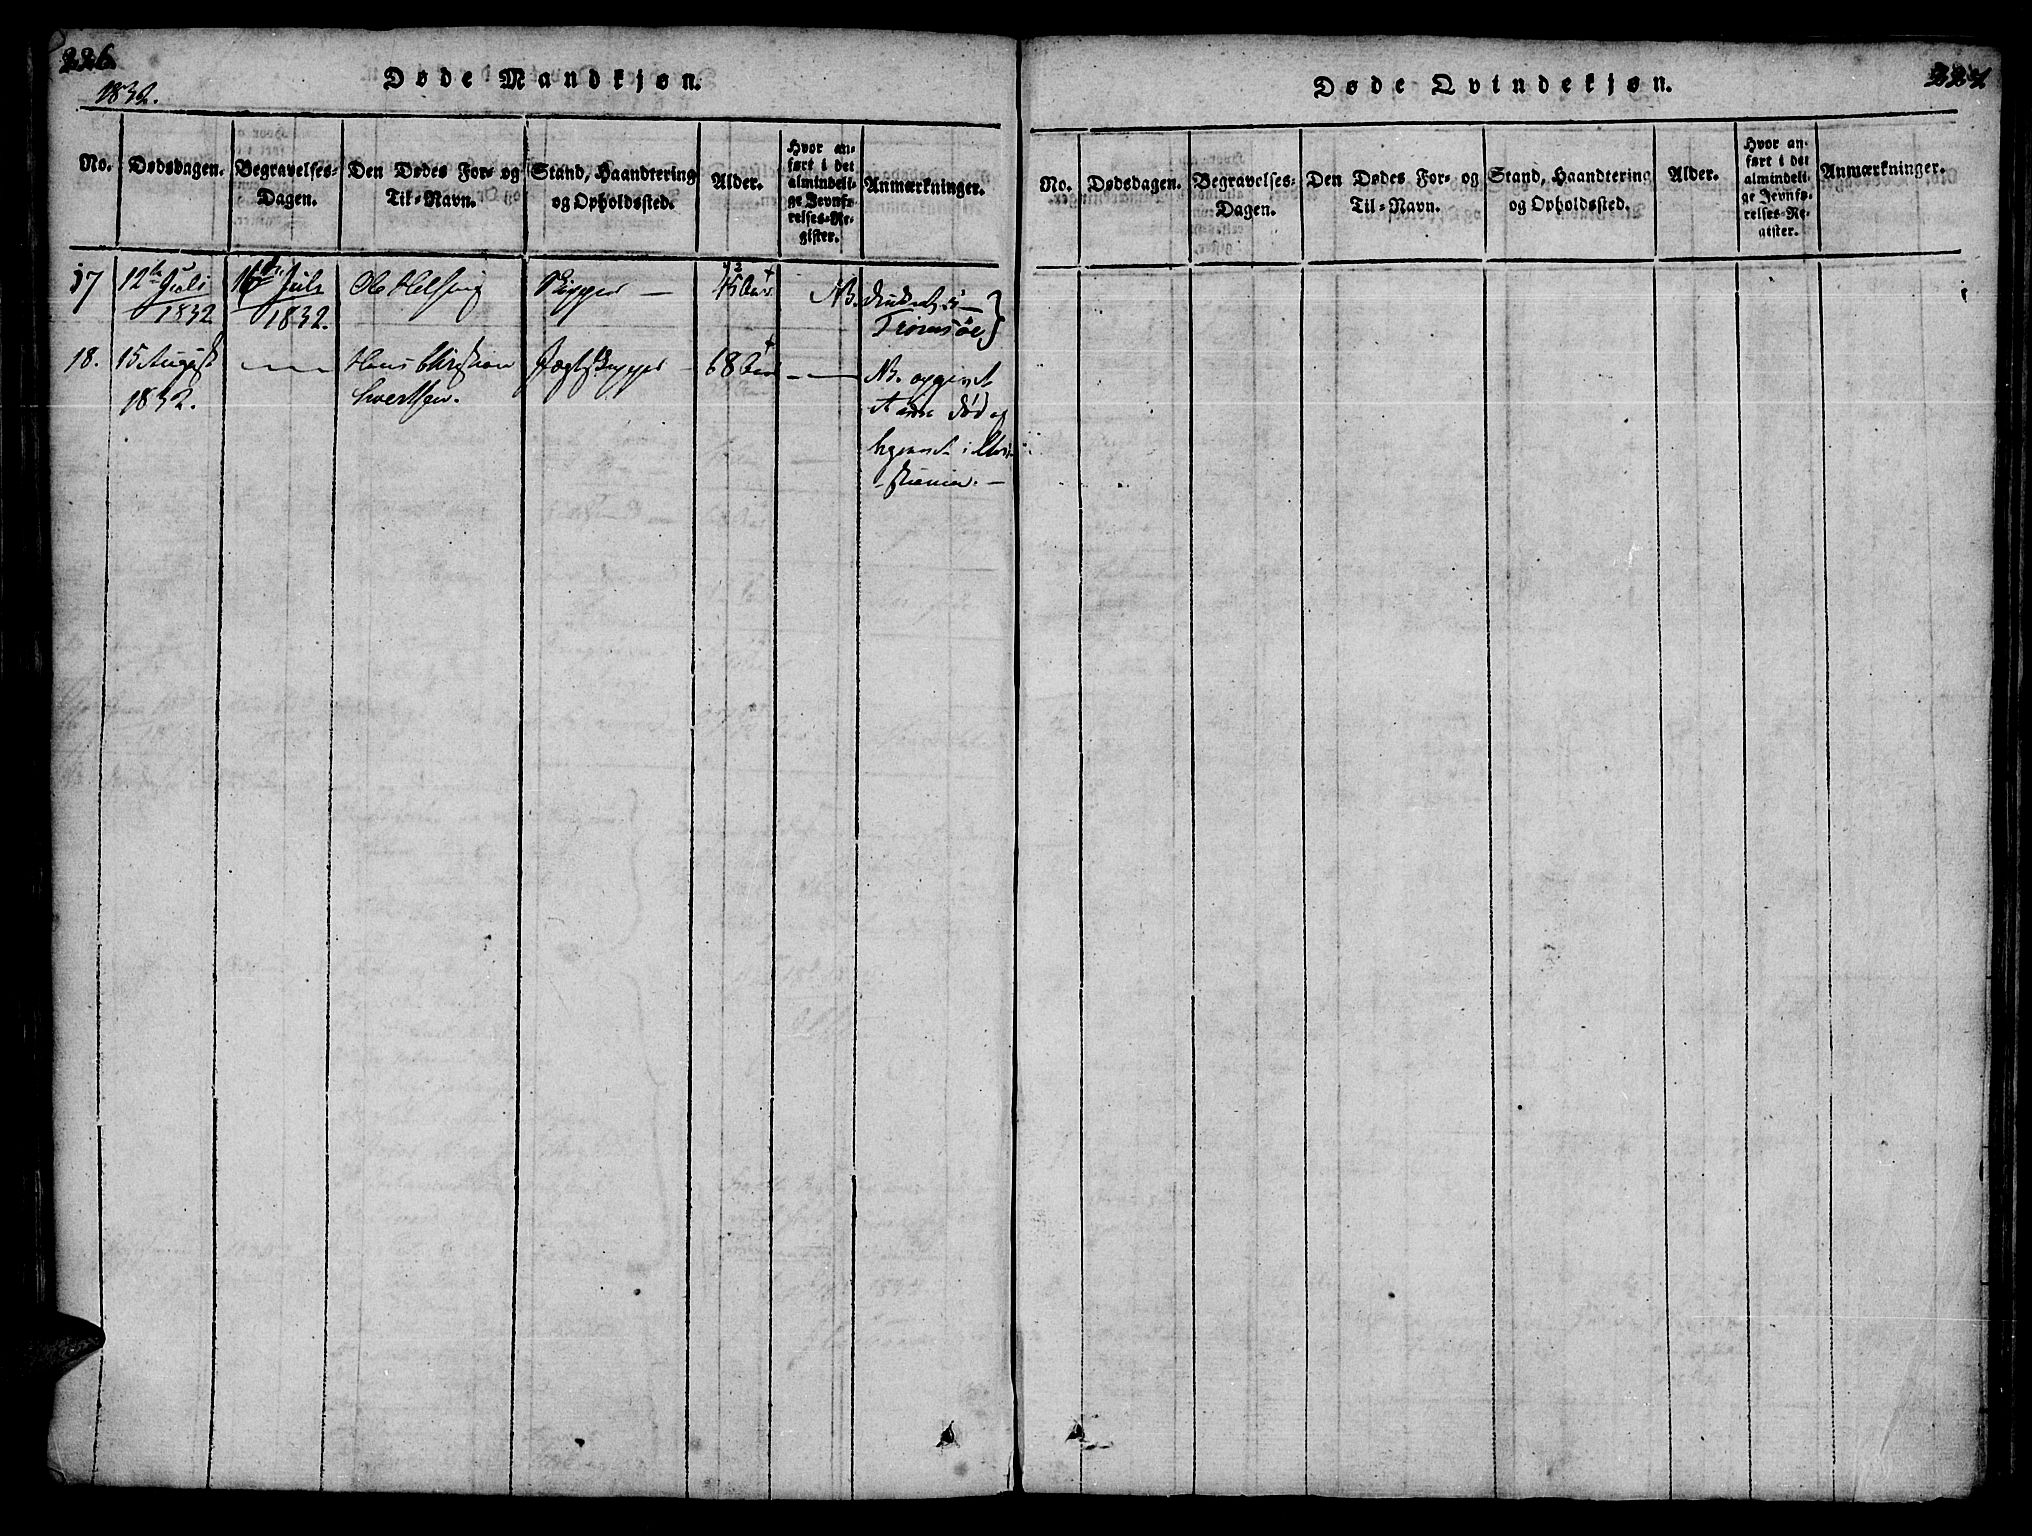 226.
1832.
Døde Mandkjøn.
No.
Dødsdagen.
Begravelses-
Dagen.
Den Dødes For- og
Til-Navn.
Stand, Haandtering
og Opholdssted.
Alder.
Hvor an-
ført i det
almindeli-
ge Jevnfø-
relses-Re-
gister.
Anmærkninger.
17
12te Juli
1832
16de Juli
1832.
Ole
Skipper —
Aar
NB.
Tromsöe
18.
15 August
1832.
Hans Christian
Jægtskipper
68 Aar
NB. opgivet
at være død og
begravet i Chri-
stiania. —
227
Døde Qvindekjøn.
No.
Dødsdagen.
Begravelses-
Dagen.
Den Dødes For- og
Til-Navn.
Stand, Haandtering
og Opholdssted.
Alder.
Hvor an-
ført i det
almindeli-
ge Jevnfø-
relses-Re-
gister.
Anmærkninger.